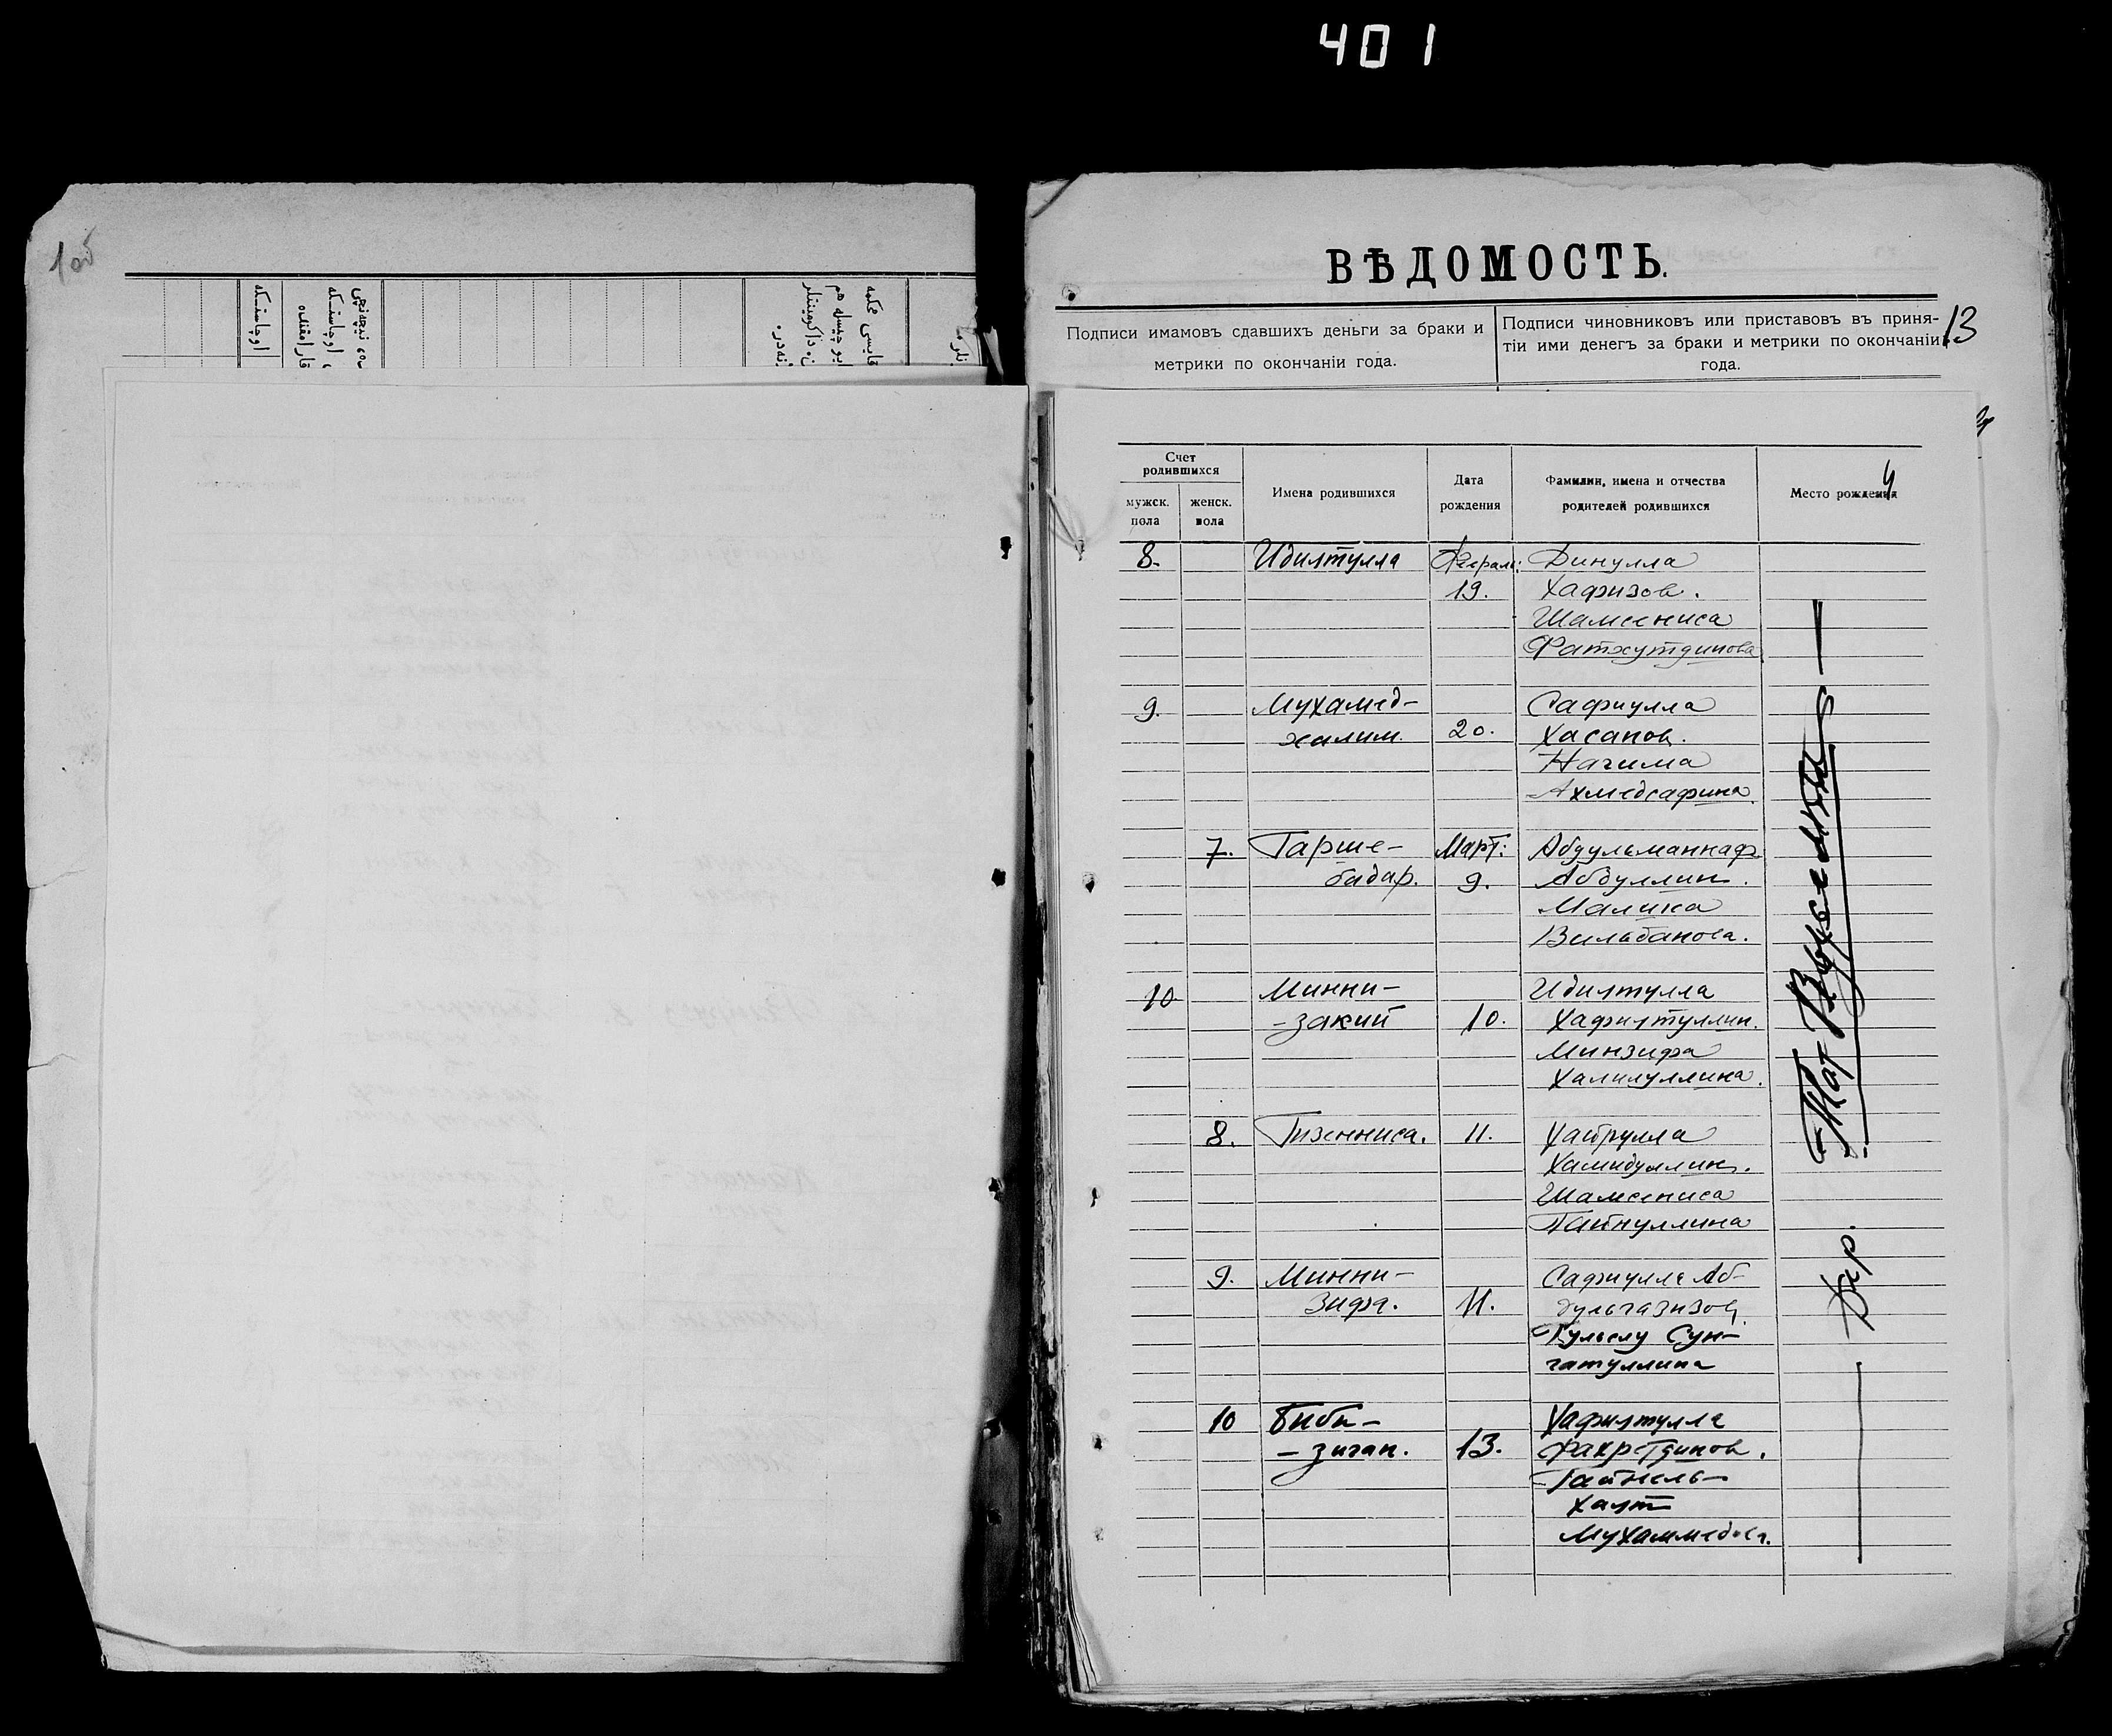 401
10об
اوچاستكه
ВѢДОМОСТЬ.
Подписи имамовъ сдавшихъ деньги за браки и
метрики по окончаніи года.
Подписи чиновниковъ или приставовъ въ приня-
тіи ими денегъ за браки и метрики по окончаніи
года.
13
4
Счет
родившихся
мужск.
пола
женск.
пола
Имена родившихся
Дата
рождения
Фамилии, имена и отчества
родителей родившихся
Место рождения
8. Идиятулла Февраль: Динулла
19. Хафизов.
Шамсениса
Фатхутдинова
9. Мухамед- Сафиулла
халим. 20. Хасанов.
Нагима
Ахмедсафина.
7. Гарше- Март: Абдульманнаф
бадар. 9. Абдуллин.
Малика
Вильданова.
10 Минни- Идиятулла
-закий 10. Хафиятуллин.
Минзифа
Халилуллина.
8. Гизенниса. 11. Хайрулла
Хамидуллин.
Шамсениса
Гайнуллина
9. Минни- Сафиулла Аб-
зифа. 11. дульгазизов
Гульслу Сун-
гатуллина
10 Биби- Хафиятулла
-зиган. 13. Фахретдинов.
Гайнель-
хаят
Мухаммедова.
Дер.